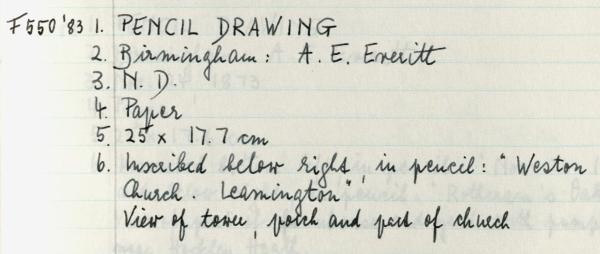 F550 '83 1. PENCIL DRAWING
2. Birmingham: A. E. Everitt
3. N. D.
4. Paper
5. 25 x 17.7 cm
6. Inscribed below right, in pencil: "Weston
Church. Leamington"
View of tower, porch and part of church